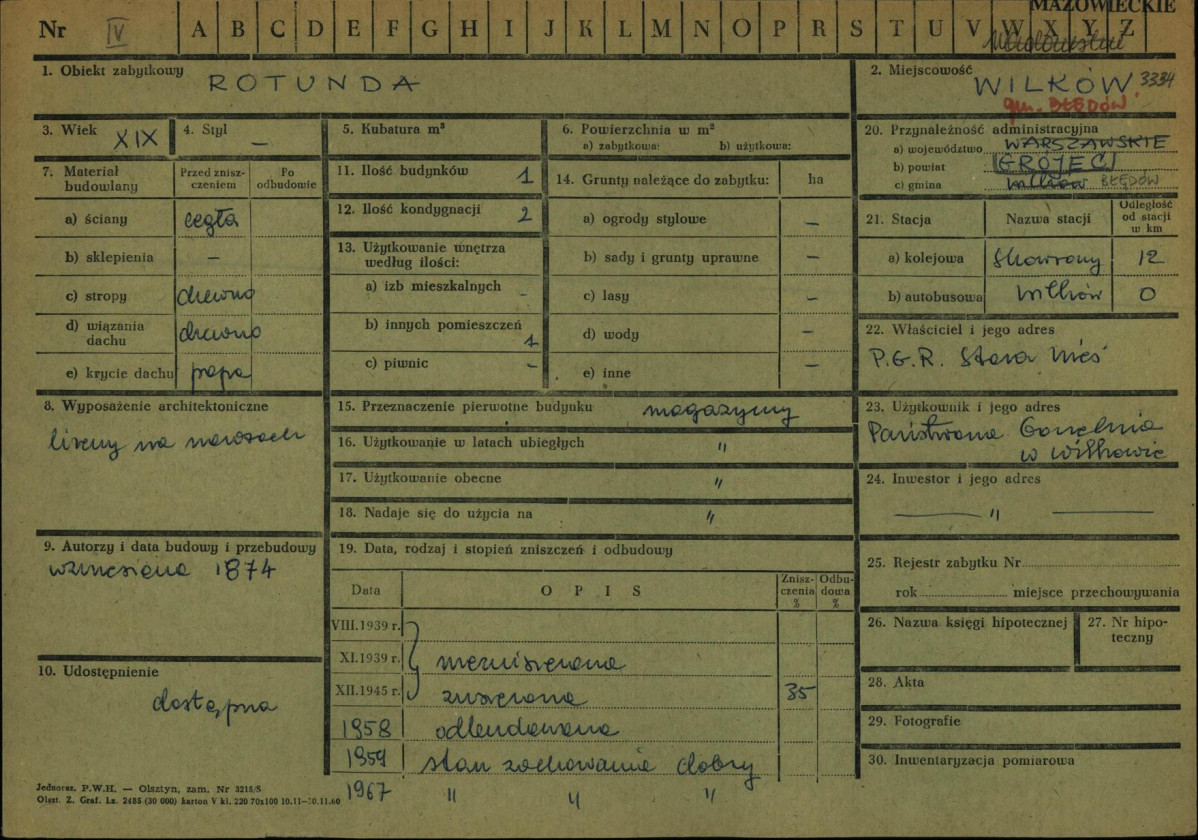 MAZOWIECKIE
Nr IV A B C D E F G H I J K L M N O P R S T U V W X Y Z
1. Obiekt zabytkowy ROTUNDA
2. Miejscowość WILKÓW 3334
gm. BŁĘDÓW
3. Wiek XIX
4. Styl —
5. Kubatura m³
6. Powierzchnia w m²
a) zabytkowa: b) użytkowa:
7. Materiał budowlany
Przed znisz-
czeniem
Po
odbudowie
a) ściany cegła
b) sklepienia —
c) stropy drewno
d) wiązania
dachu drewno
e) krycie dachu papa
8. Wyposażenie architektoniczne
lizeny na narożach
9. Autorzy i data budowy i przebudowy
wzniesiona 1874
10. Udostępnienie
dostępna
11. Ilość budynków 1
12. Ilość kondygnacji 2
13. Użytkowanie wnętrza
według ilości:
a) izb mieszkalnych -
b) innych pomieszczeń
1
c) piwnic —
14. Grunty należące do zabytku: ha
a) ogrody stylowe —
b) sady i grunty uprawne —
c) lasy —
d) wody —
e) inne —
15. Przeznaczenie pierwotne budynku magazyny
16. Użytkowanie w latach ubiegłych "
17. Użytkowanie obecne "
18. Nadaje się do użycia na "
19. Data, rodzaj i stopień zniszczeń i odbudowy
Data O P I S Znisz-
czenia
%
Odbu-
dowa
%
VIII.1939 r.
XI.1939 r. niezniszczona
XII.1945 r. zniszczona 35
1958 odbudowana
1959 stan zachowania dobry
1967 " " "
20. Przynależność administracyjna
a) województwo WARSZAWSKIE
b) powiat GRÓJEC
c) gmina Wilków BŁĘDÓW
21. Stacja Nazwa stacji Odległość
od stacji
w km
a) kolejowa 12
b) autobusowa Wilków 0
22. Właściciel i jego adres
P.G.R. Stara Wieś
23. Użytkownik i jego adres
Państwowa Gorzelnia
w Wilkowie
24. Inwestor i jego adres
— " —
25. Rejestr zabytku Nr
rok miejsce przechowywania
26. Nazwa księgi hipotecznej
27. Nr hipo-
teczny
28. Akta
29. Fotografie
30. Inwentaryzacja pomiarowa
Jednoraz. P.W.H. — Olsztyn, zam. Nr 3215/S
Olszt. Z. Graf. Lz. 2485 (30 000) karton V kl. 220 70x100 10.11—30.11.60